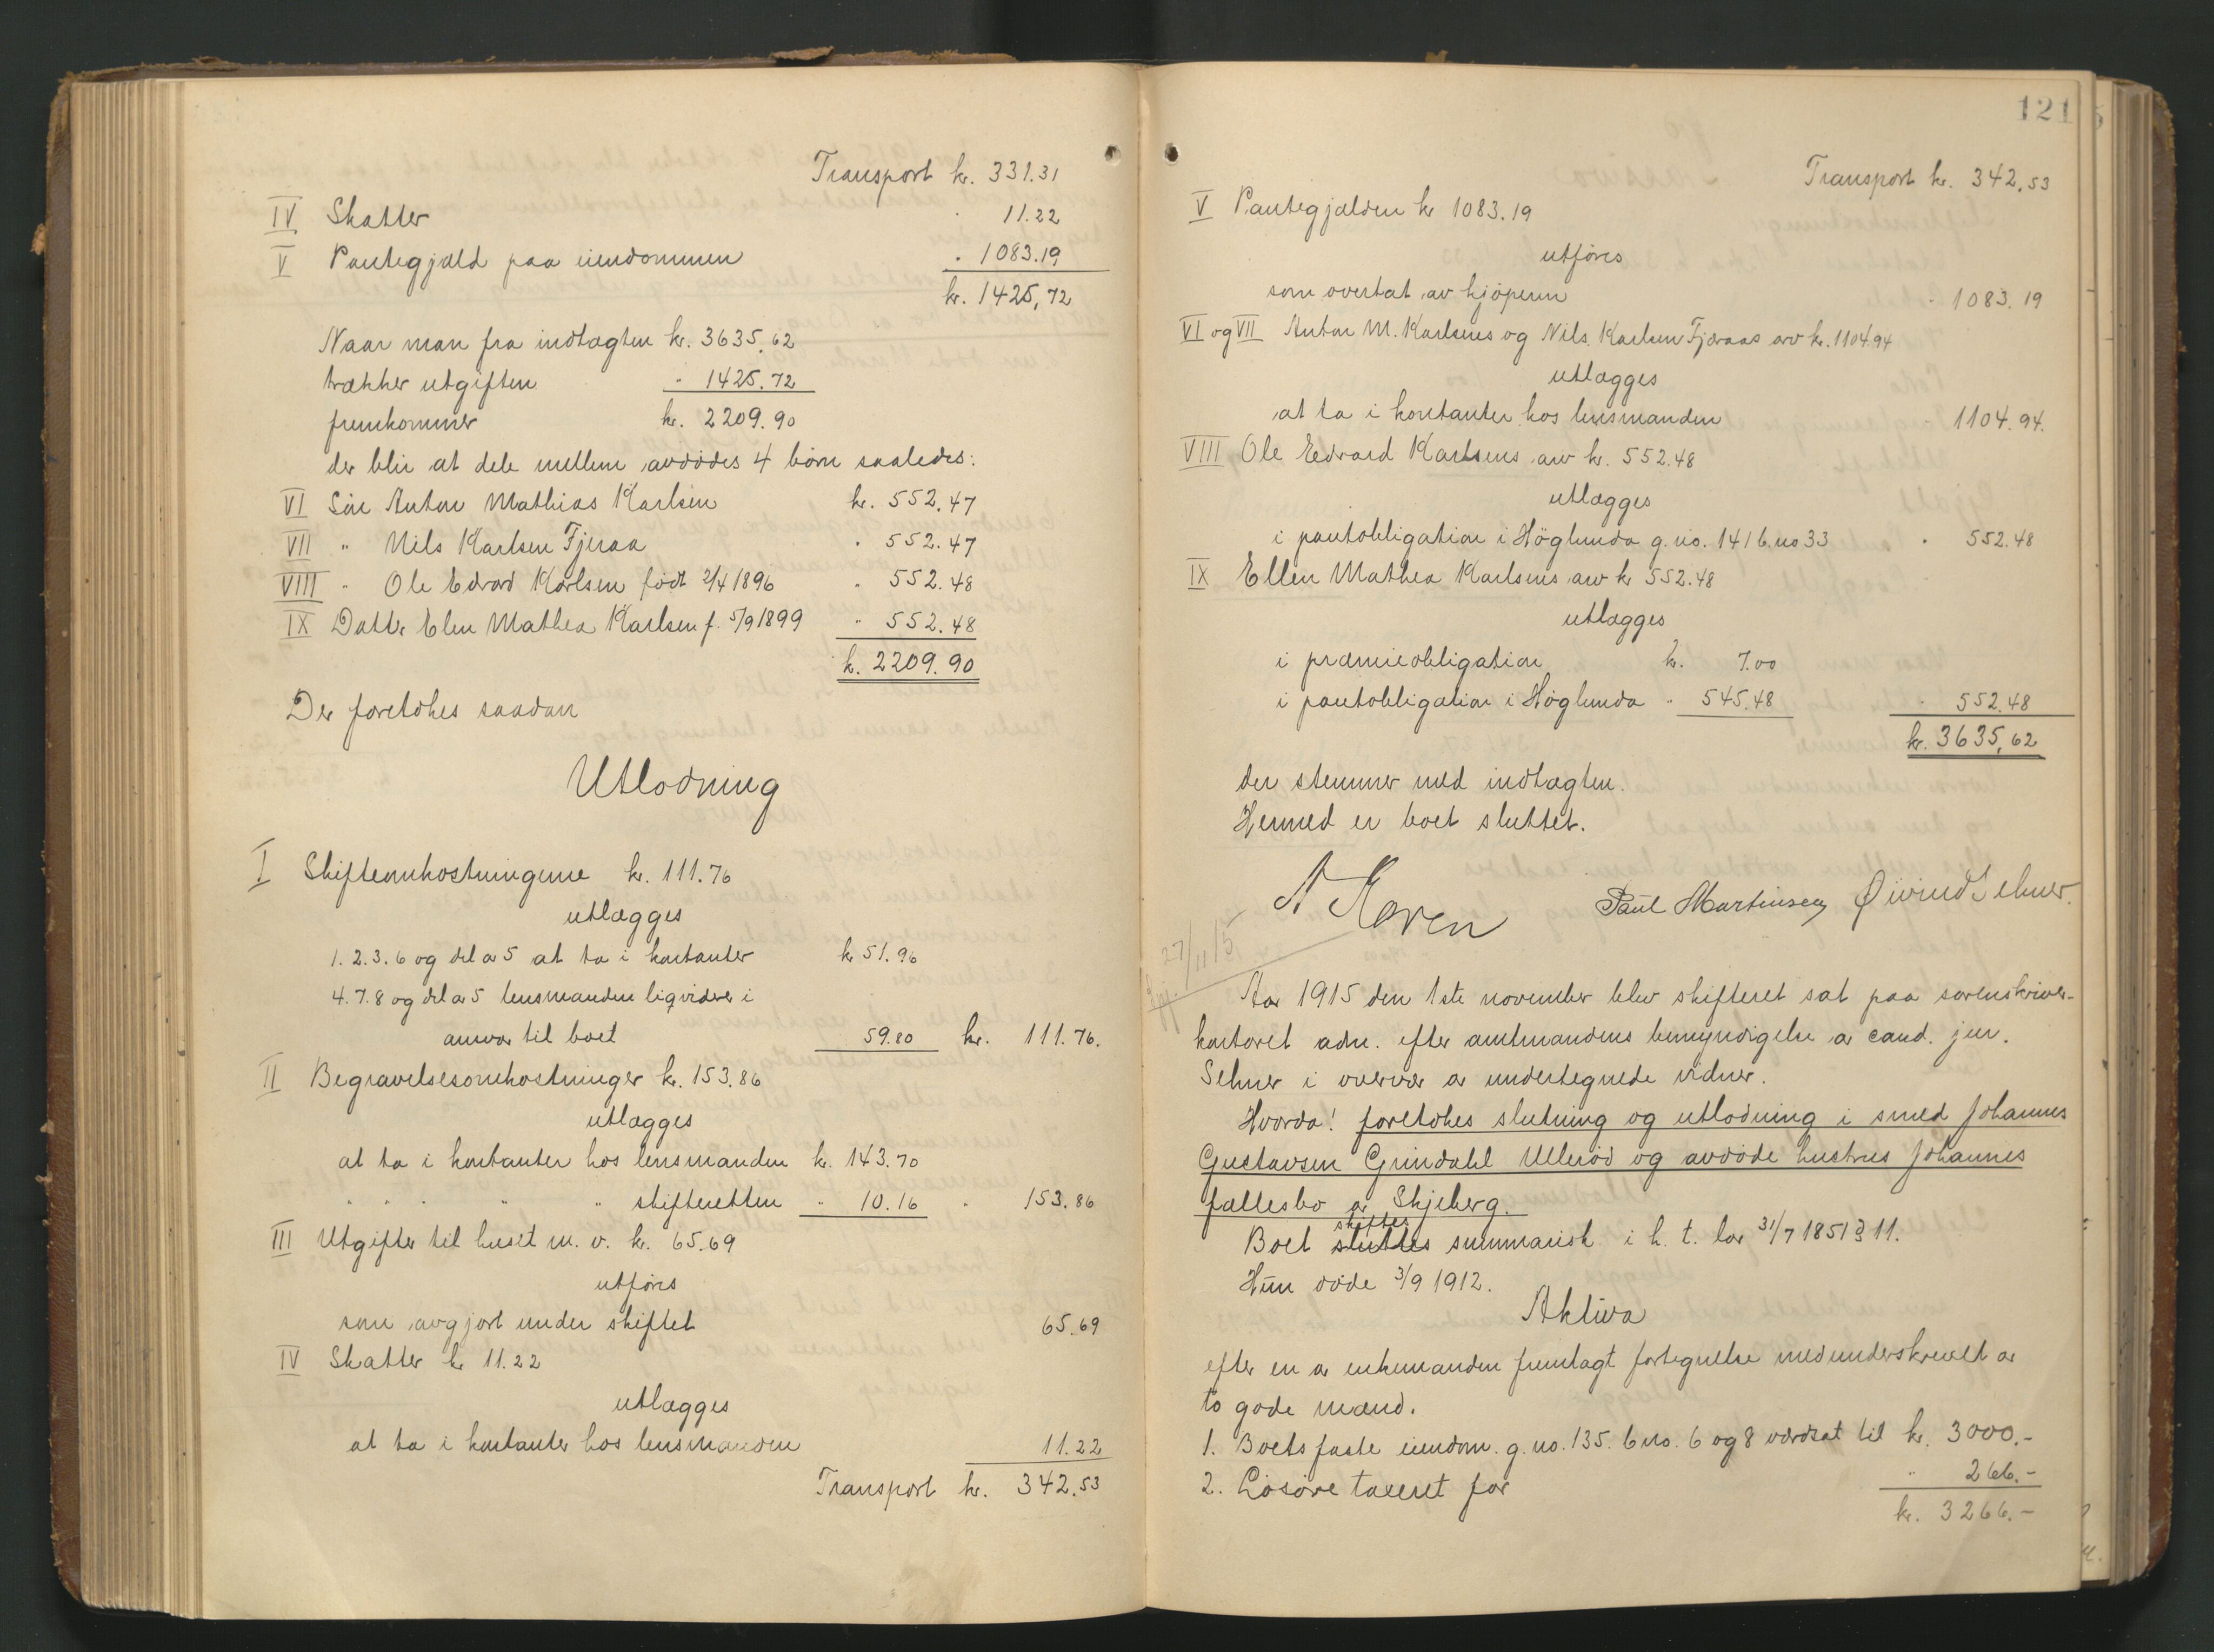 Transport kr. 331.31
IV Skatter " 11.22
V Pantegjæld paa eiendommen " 1083.19
kr. 1425,72
Naar man fra indtægten kr. 3635,62
trækker utgiften " 1425.72
fremkommer kr. 2209.90
der blir at dele mellem avdødes 4 børn saaledes:
VI Søn Anton Mathias Karlsen kr. 552.47
VII " Nils Karlsen Fjeraa " 552.47
VIII " Ole Edvard Karlsen født 2/4 1896 " 552.48
IX Datter Elen Mathea Karlsen f. 5/9 1899 " 552.48
k. 2209.90
Der foretokes saadan
Utlodning
I Skifteomkostningerne kr. 111.76
utlægges
1. 2. 3. 6 og del av 5 at ta i kontanter kr 51.96
4. 7. 8 og del av 5 lensmanden liqviderer i
ansvar til boet 59.80 kr. 111.76.
II Begravelsesomkostninger kr. 153.86
utlægges
at ta i kontanter hos lensmanden kr. 143.70
" " " " " skifteretten " 10.16 " 153.86
III Utgifter til huset m. v. kr. 65.69
utføres
som avgjort under skiftet 65.69
IV Skatter kr 11.22
utlægges
at ta i kontanter hos lensmanden 11.22
Transport kr. 342.53
121
Transport kr. 342,53
V Pantegjælden kr 1083.19
utføres
som overtat av kjøperen " 1083.19
VI og VII Anton M. Karlsens og Nils Karlsen Fjæraas arv kr. 1104.94
utlægges
at ta i kontanter hos lensmanden 1104.94.
VIII Ole Edvard Karlsens arv kr. 552.48
utlægges
i pantobligation i Höglunda g. no. 141 b. no 33 " 552.48
IX Ellen Mathea Karlsens arv kr 552.48
utlægges
i præmieobligation kr. 7.00
i pantobligation i Höglunda " 545.48 " 552.48
kr. 3635,62
der stemmer med indtægten.
Hermed er boet sluttet.
Paul Martinsen Øivind Selmer.
27/11 15
Aar 1915 den 1ste november blev skifteret sat paa sorenskriver-
kontoret adm. efter amtmandens bemyndigelse av cand. jur.
Selmer i overvær av undertegnede vidner.
Hvorda! foretokes slutning og utlodning i smed Johannes
Gustavsen Grindahl Ullerød og avdøde hustrus Johannes
fællesbo av Skjeberg.
skiftes
Boet sluttes summarisk i h. t. lov 31/7 1851 § 11.
Hun døde 3/9 1912.
Aktiva
efter en av enkemanden fremlagt fortegnelse medunderskrevet av
to gode mænd.
1. Boets faste eiendom. g. no. 135. b no. 6 og 8 værdsat til kr. 3000.-
2. Løsøre taxeret for " 266.-
kr. 3266.-